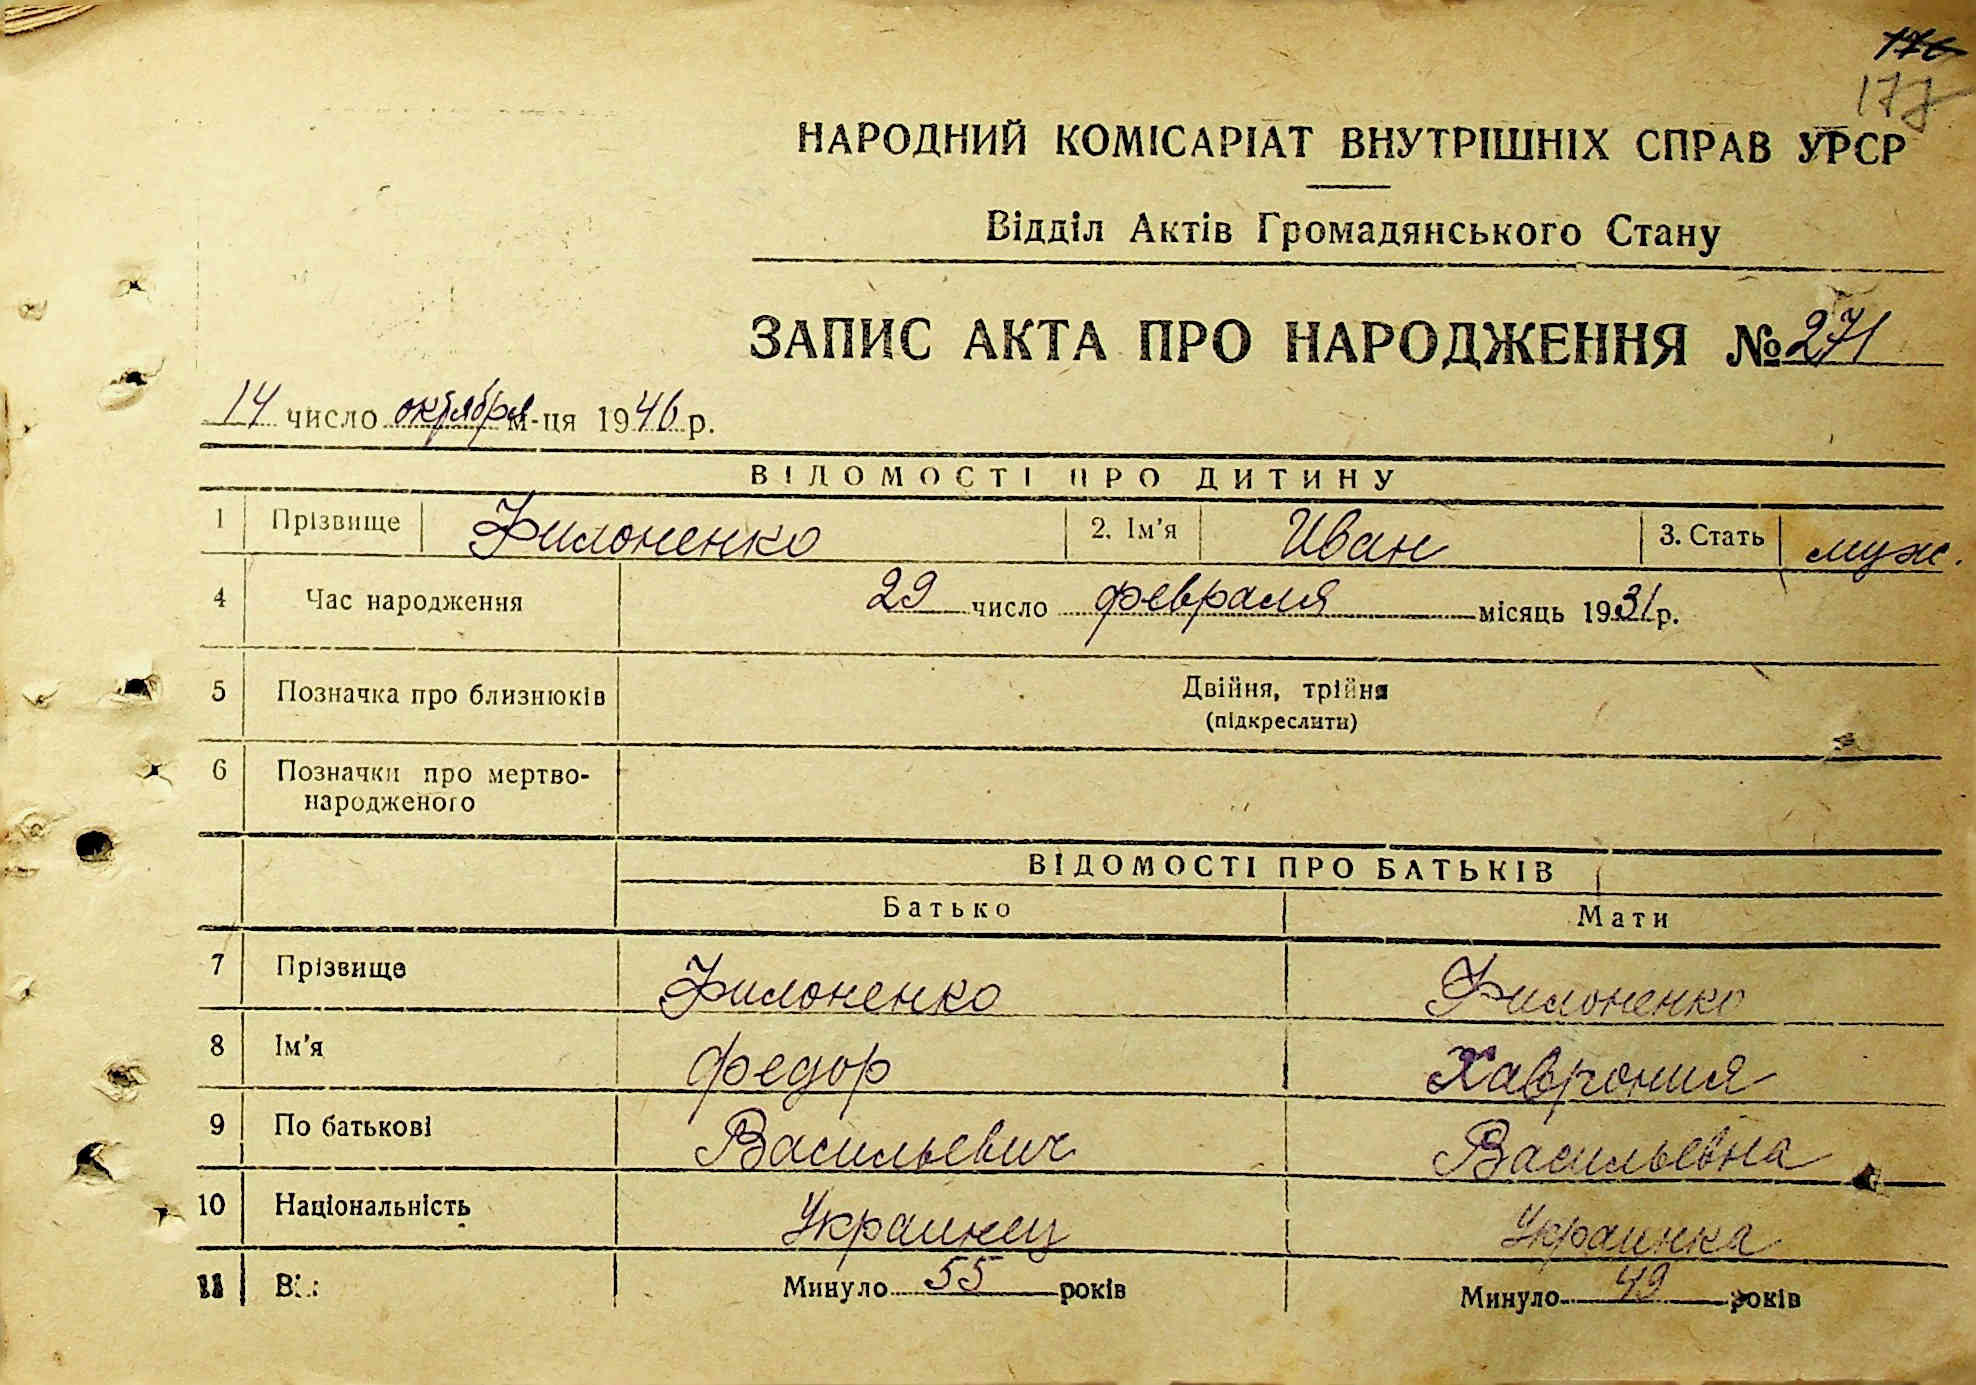 176
177
НАРОДНИЙ КОМІСАРІАТ ВНУТРІШНІХ СПРАВ УРСР
Відділ Актів Громадянського Стану
ЗАПИС АКТА ПРО НАРОДЖЕННЯ № 271
14 число октября м-ця 1946 р.
ВІДОМОСТІ ПРО ДИТИНУ
1 Прізвище Филоненко 2. Ім'я Иван 3. Стать муж.
4 Час народження 29 число февраля місяць 1931 р.
5 Позначка про близнюків Двійня, трійня
(підкреслити)
6 Позначки про мертво-
народженого
ВІДОМОСТІ ПРО БАТЬКІВ
Батько Мати
7 Прізвище Филоненко Филоненко
8 Ім'я Федор Хаврония
9 По батькові Васильевич Васильевна
10 Національність Украинец Украинка
11 Минуло 55 років Минуло 49 років